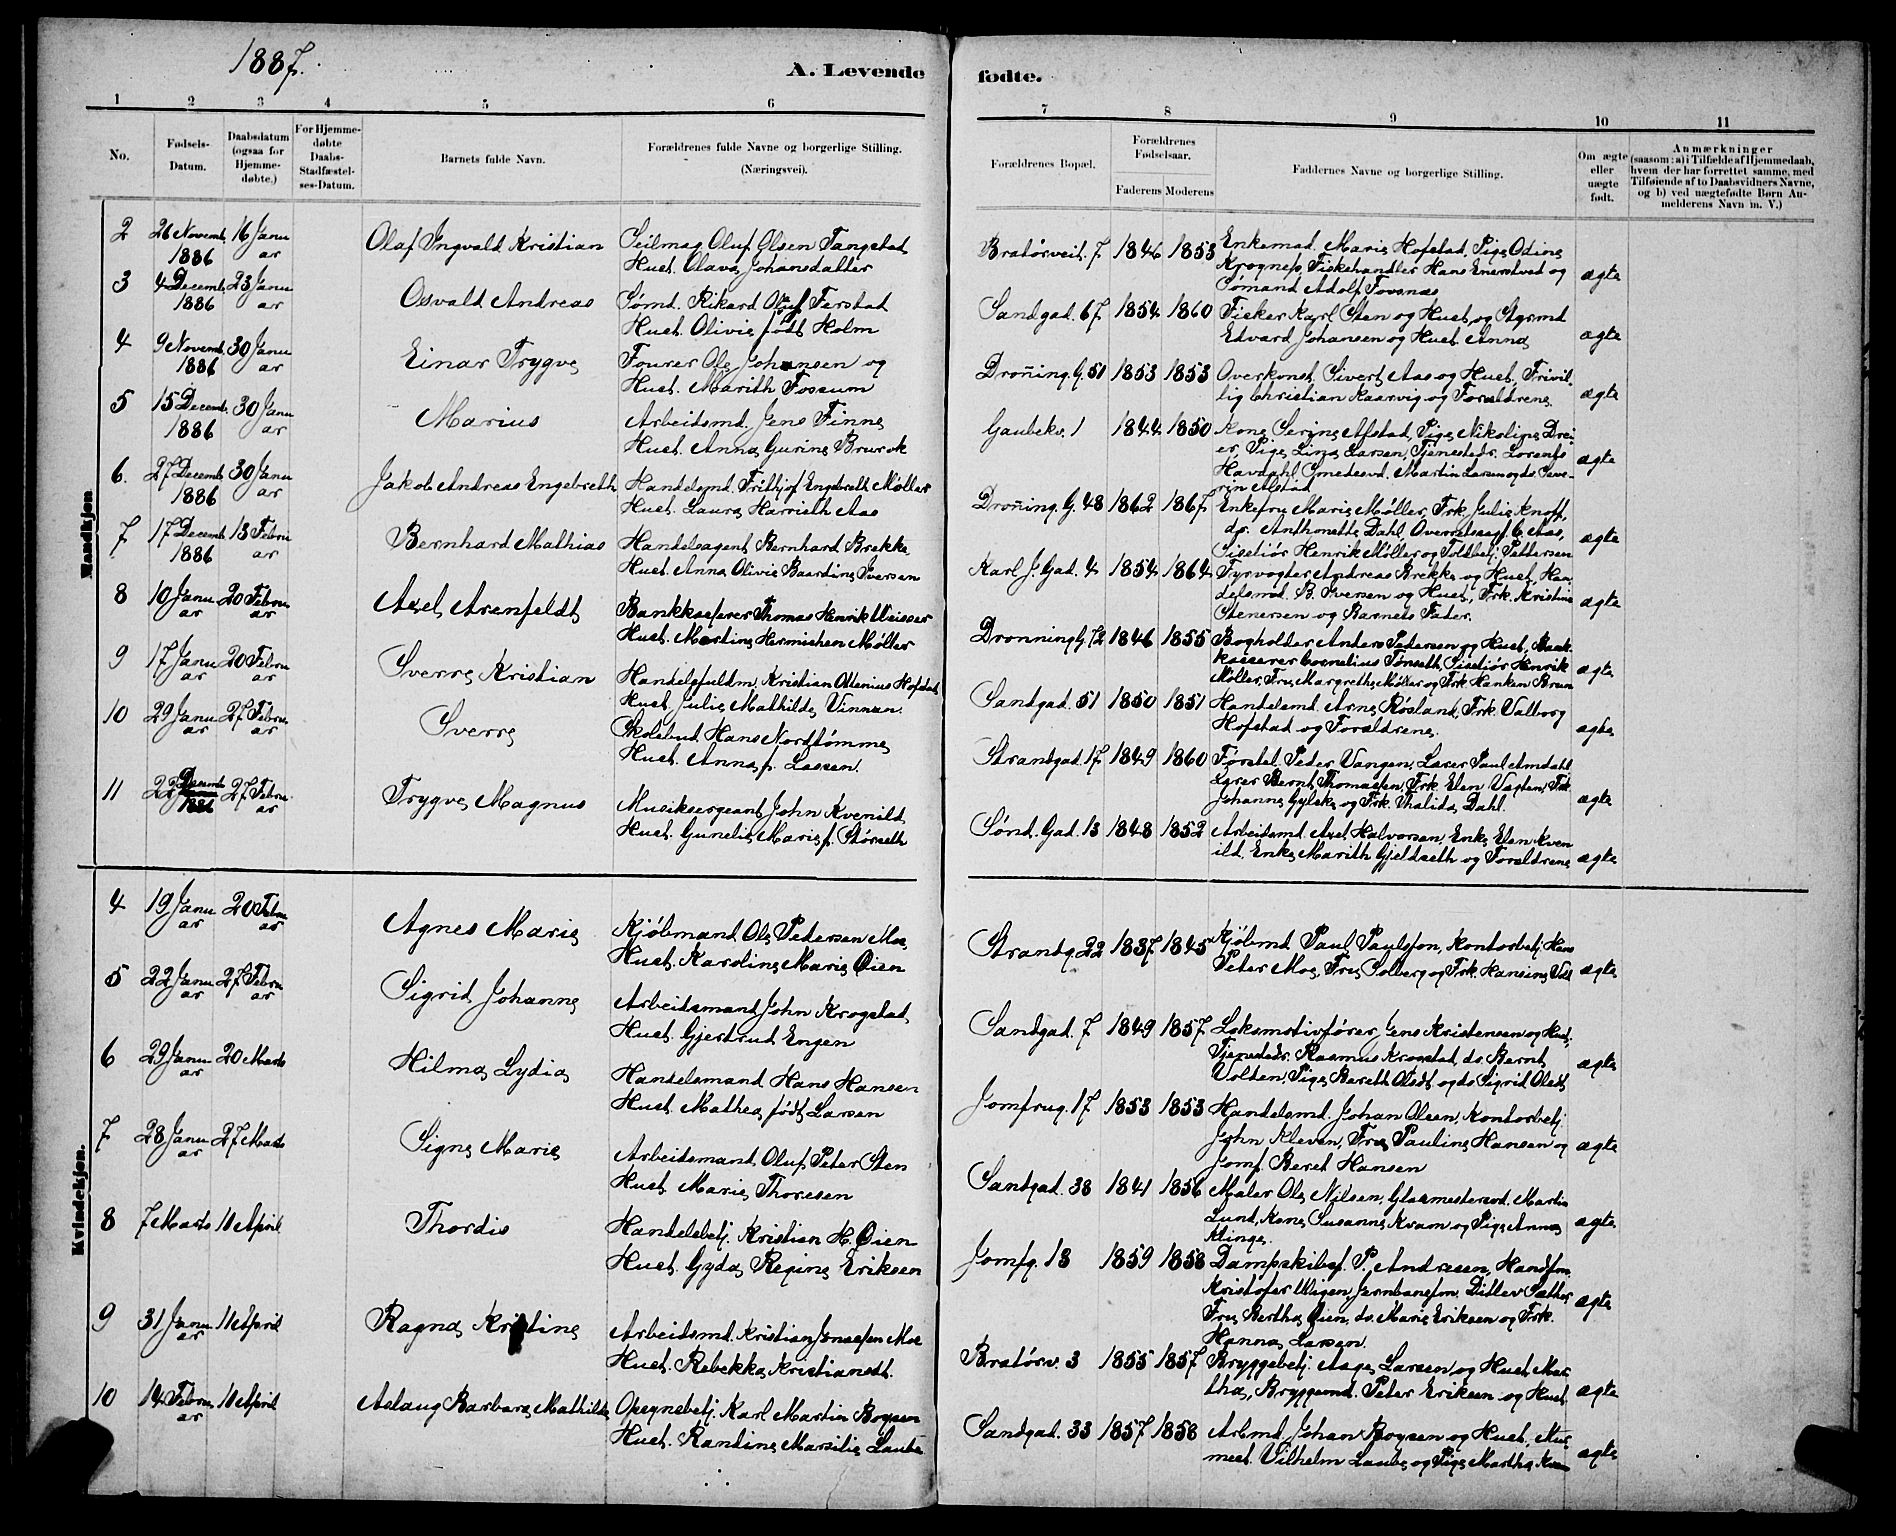 1887.
A. Levende fødte.
1 2 3 4 5 6 7 8 9 10 11
No.
Fødsels-Datum.
Daabsdatum (ogsaa for Hjemme-døbte.)
For Hjemme-døbte Daabs-Stadfæstel-ses-Datum.
Barnets fulde Navn.
Forældrenes fulde Navne og borgerlige Stilling. (Næringsvei).
Forældrenes Bopæl.
Forældrenes Fødselsaar.
Faderens Moderens
Faddernes Navne og borgerlige Stilling.
Om ægte eller uægte født.
Anmærkninger
(saasom: a) i Tilfælde af Hjemmedaab,
hvem der har forrettet samme, med
Tilføiende af to Daabsvidners Navne,
og b) ved uægtefødte Børn An-
melderens Navn m. V.)
Mandkjøn
2 26 Novemb. 1886 16 Januar Olaf Ingvald Kristian Seilmag. Oluf Olsen Tangstad
Hust. Olava Johansdatter
Bratørveit. 7 1846 1853 Enkemad. Marie Hofstad, Pige Odine
Krognes, Fiskehandler Hans Enerstved og
Sømand Adolf Fosnæs ægte
3 4 Decemb. 1886 23 Januar Osvald Andreas Sømd. Rikard Oluf Ferstad
Hust. Olivie født Holm
Sandgad. 67 1854 1860 Fisker Karl Sten og Hust. og Styrmd
Edvard Johansen og Hust. Anna ægte
4 9 Novemb. 1886 30 Januar Einar Trygve Fourer Ole Johansen og
Hust. Marith Fossum
Droning. G. 51 1853 1853 Overkonst. Sivert Aas og Hust., Frivil-
lig Christian Kaarvig og Forældrene ægte
5 15 Decemb. 1886 30 Januar Marius Arbeidsmd. Jens Finne
Hust. Anna Gurine Brurok
Gaubekv. 1 1844 1850 Kone Serine Afstad, Pige Nikoline Drei-
er, Pige Lina Larsen, Tjenestedr. Lorents
Havdahl, Smedesvd. Martin Larsen og ds. Seve-
rin Alstad ægte
6. 27 Decemb. 1886 30 Januar Jakob Andreas Engebreth Handelsmd. Frithjof Engebreth Møller
Hust. Laura Harrieth Aas
Droning. G. 48 1862 1867 Enkefru Marie Møller, Frk. Julie Knoff,
do. Anthonette Dahl, Overretssagf. C. Aas,
Disetiør Henrik Møller og Toldbetj. Pettersen ægte
7 17 Decemb. 1886 13 Februar Bernhard Mathias Handelsagent Bernhard Brekke
Hust. Anna Olivie Baardine Iversen
Karl J. Gad. 4 1854 1864 Fyrvogter Andreas Brekke og Hust., Han-
delsmd. B. Iversen og Hust., Frk. Kristine
Stenersen og Barnets Fader. ægte
8 10 Januar 20 Februar Axel Arenfeldt Bankkasserer Thomas Henrik Weisser
Hust. Martine Hermichen Møller
Dronning G. 72 1846 1855 Bogholder Anders Pedersen og Hust., Bank-
kasserer Cornelius Tønseth, Disetiør Henrik
Møller, Fru Margrethe Møller og Frk. Hanken Brun ægte
9 17 Januar 20 Februar Sverre Kristian Handelsfuldm. Kristian Ottenius Hofstad
Hust. Julie Mathilde Vinnan
Sandgad. 51 1850 1851 Handelsmd. Arne Røsland, Frk. Valborg
Hofstad og Forældrene. ægte
10 29 Januar 27 Februar Sverre Skolebud Hans Nordtømme
Hust. Anna f. Lassen.
Strandgad. 17 1849 1860 Førstel. Peter Vangen, Lærer Paul Amdahl
Lærer Bernt Thomassen, Frk. Elen Vagten, Frk.
Johanne Gylche og Frk. Thalida Dahl. ægte
11 22 Decemb. 1886 27 Februar Trygve Magnus Musiksergeant John Kvenild
Hust. Gunelie Marie f. Størseth
Sønd. Gad. 13 1848 1852 Arbeidsmd. Axel Halvorsen, Enke Elen Kven
ild, Enke Marith Gjeldseth og Forældrene ægte
Kvindekjøn.
4 19 Januar 20 Februar Agnes Marie Kjøbmand Ole Pedersen Moe
Hust. Karoline Marie Øien
Strandg. 22 1837 1845 Kjøbmd. Paul Paulsson, Kontorbetj. Hans
Peter Moe, Fru Solberg og Frk. Hansine ægte
5 22 Januar 27 Februar Sigrid Johanne Arbeidsmand John Krogstad
Hust. Gjertrud Engen
Sandgad. 7 1849 1857 Lokomotivfører Jens Kristensen og Hust.,
Tjenestedr. Rasmus Krogstad, do. Bernt
Volden, Pige Bereth Olsdt. og do Sigrid Olsdt ægte
6 29 Januar 20 Marts Hilma Lydia Handelsmand Hans Hansen
Hust. Mathea født Larsen
Jomfrug. 17 1853 1853 Handelsmd. Johan Olsen, Kontorbetj.
John Kleven, Fru Pauline Hansen og
Jomf. Beret Hansen ægte
7 28 Januar 27 Marts Signe Marie Arbeidsmand Oluf Peter Sten
Hust. Marie Thoresen
Sandgad. 38 1841 1856 Maler Ole Nilsen, Glasmestersvd. Martin
Lund, Kone Susanne Kvam og Pige Anna
Klinge. ægte
8 7 Marts 11 April Thordis Handelsbetj. Kristian H. Øien
Hust. Gyda Regine Eriksen
Jomfg. 18 1859 1858 Dampskibsf. P. Andresen, Handfm.
Kristofer Wigen, Jernbanefm. Ditlev Sæther
Fru Bertha Øien, do. Marie Eriksen og Frk.
Hanna Larsen ægte
9 31 Januar 11 April Ragna Kristine Arbeidsmd. Kristian Jonassen Moe
Hust. Rebekka Kristiansdt.
Bratørv. 3 1855 1857 Bryggebetj. Aage Larsen og Hust. Mar-
tha, Bryggemd. Peter Eriksen og Hust. ægte
10 14 Februar 11 April Aslaug Barbara Mathilde Opsynsbetj. Karl Martin Boysen
Hust. Randine Marsilie Laube
Sandgad. 33 1857 1858 Arbmd. Johan Boysen og Hust., Mur-
mest. Vilhelm Laube og Pige Martha ægte